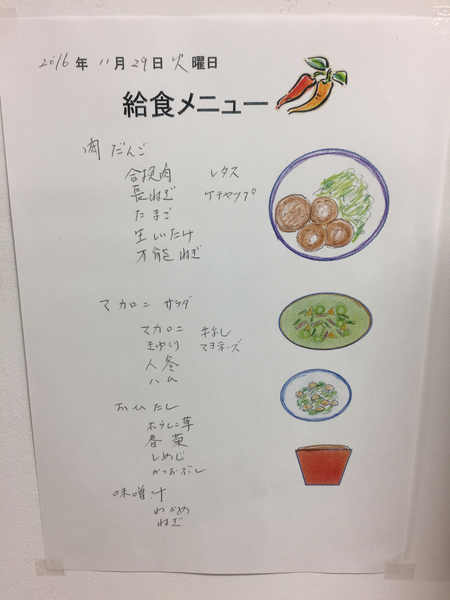 2016年 11月29日 火曜日
給食メニュー
肉だんご
合挽肉 レタス
長ねぎ ケチャップ
たまご
生しいたけ
万能ねぎ
マカロニ サラダ
マカロニ 牛乳
きゅうり マヨネーズ
人参
ハム
おひたし
ホウレン草
春菊
しめじ
かつおぶし
味噌汁
わかめ
ねぎ